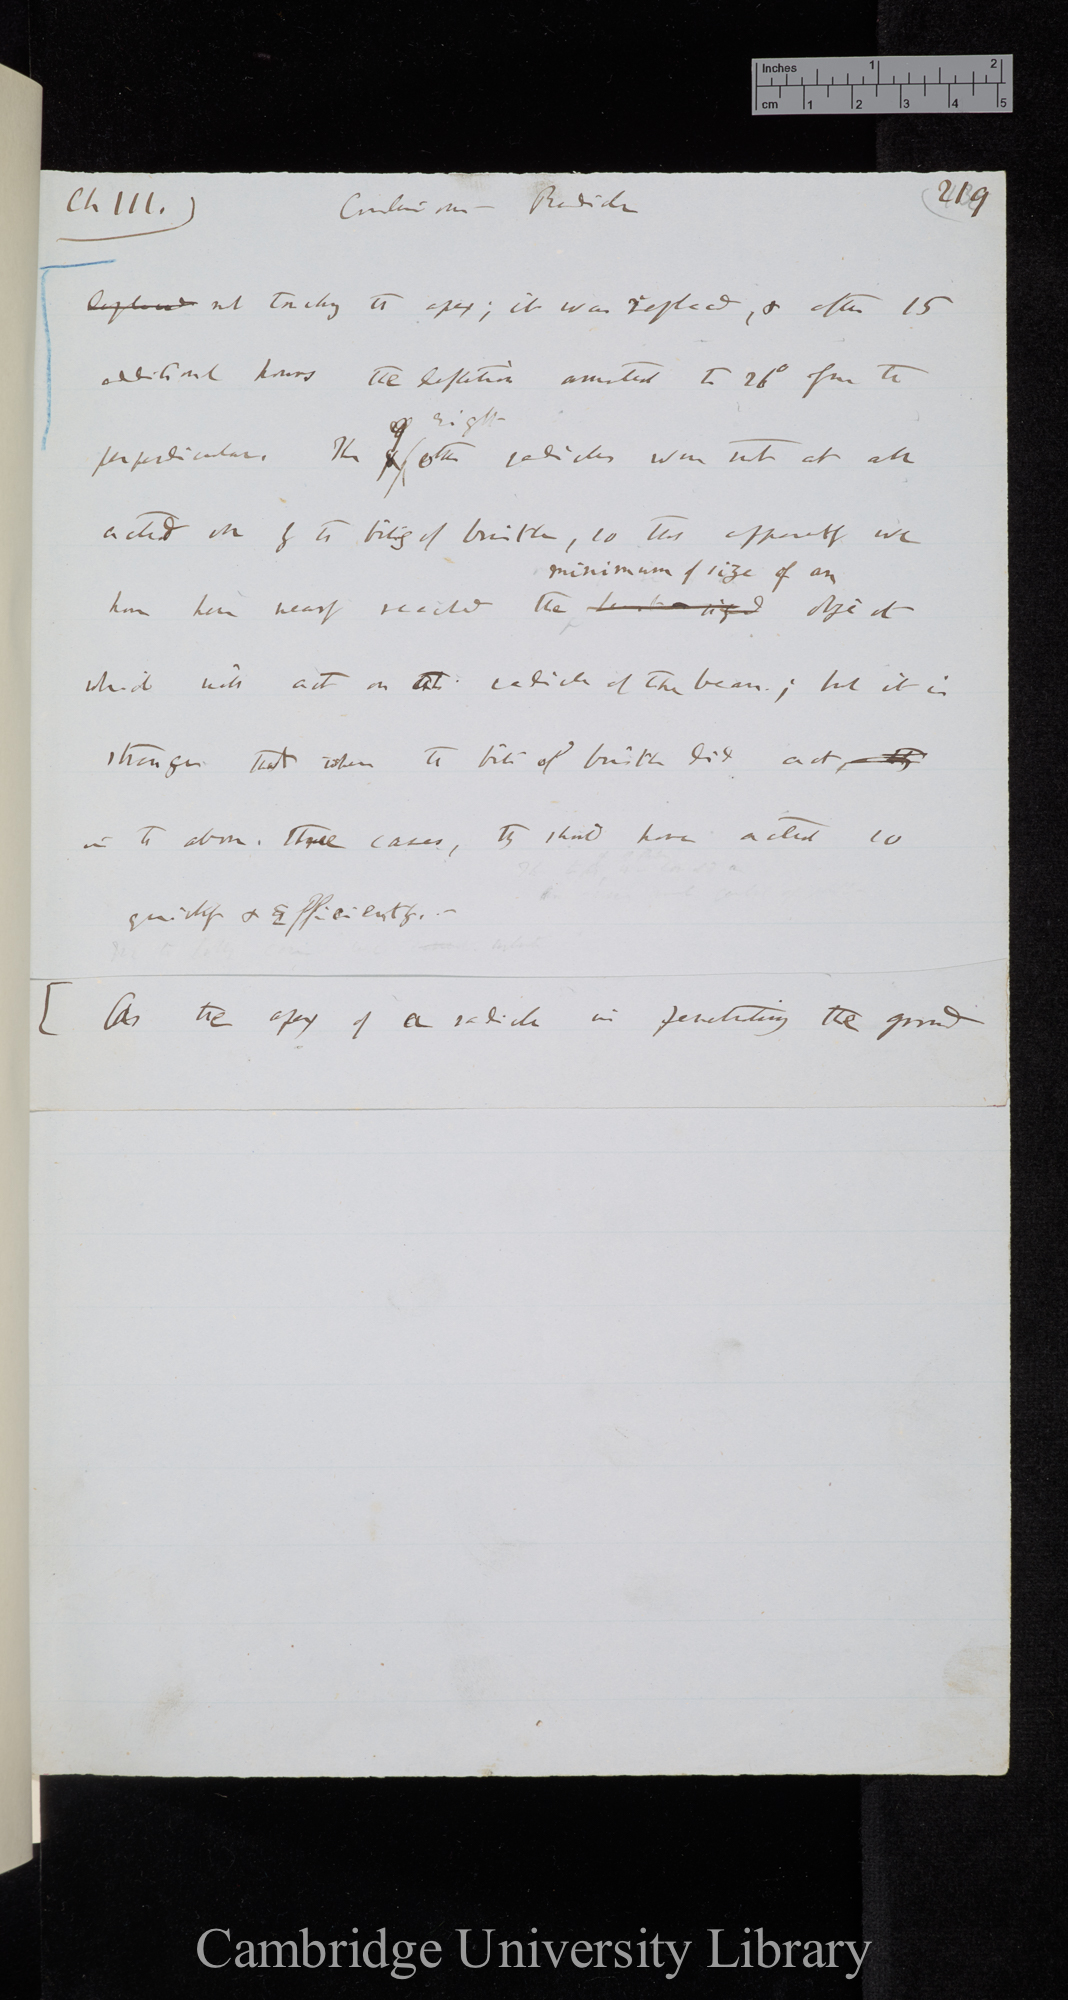 Inches 1 2
cm 1 2 3 4 5
Ch III.)
Radicle
219
not touching the apex; it was replaced, & after 15
additional hours the deflection amounted to 26° from the
right
perpendicular. The other radicles were not at all
acted on by the bits of bristle, so that apparently we
minimum of size of an
have here nearly reached the object
which will act on the radicle of the bean; but it is
strange that when the bits of bristle did act,
in the above three cases, they should have acted so
quickly & efficiently.—
[As the apex of a radicle in penetrating the ground
Cambridge University Library